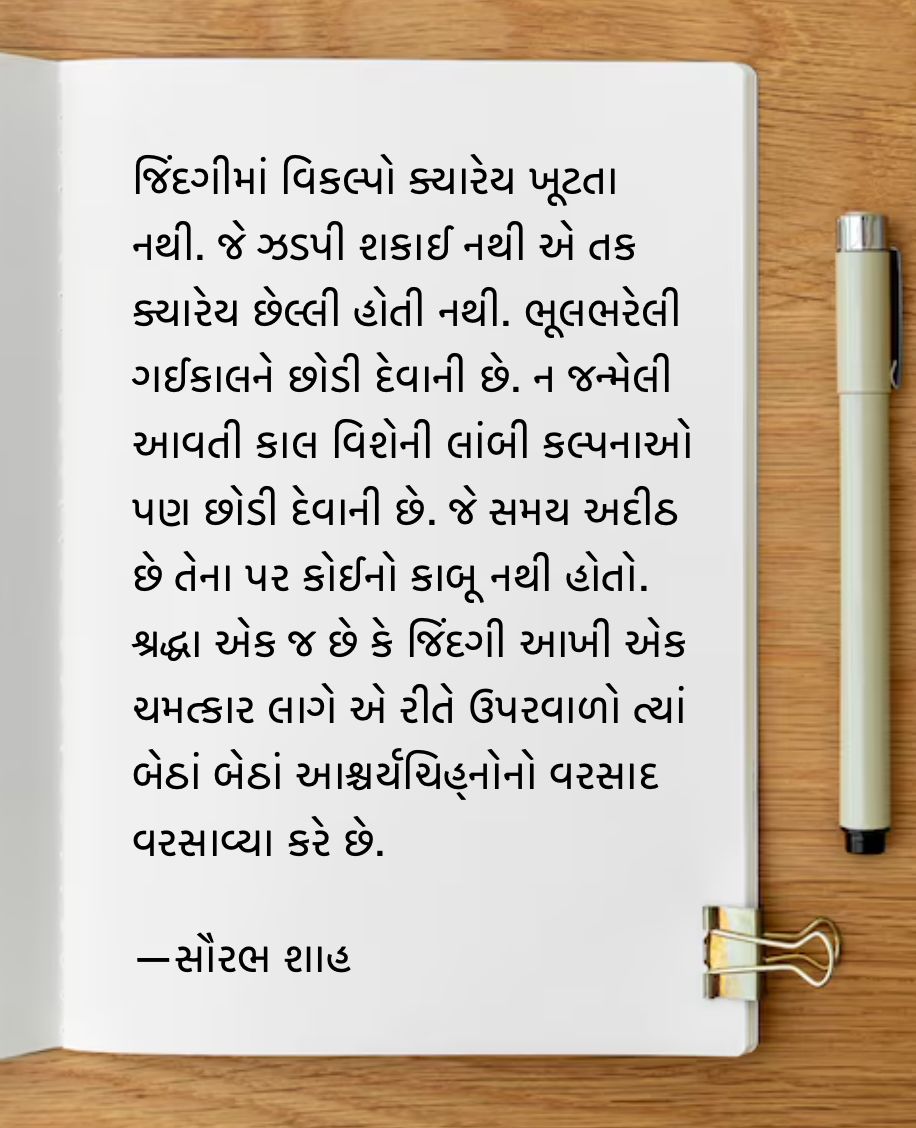 જિંદગીમાં વિકલ્પો ક્યારેય ખૂટતા
નથી. જે ઝડપી શકાઈ નથી એ તક
ક્યારેય છેલ્લી હોતી નથી. ભૂલભરેલી
ગઈકાલને છોડી દેવાની છે. ન જન્મેલી
આવતી કાલ વિશેની લાંબી કલ્પનાઓ
પણ છોડી દેવાની છે. જે સમય અદીઠ
છે તેના પર કોઈનો કાબૂ નથી હોતો.
શ્રદ્ધા એક જ છે કે જિંદગી આખી એક
ચમત્કાર લાગે એ રીતે ઉપરવાળો ત્યાં
બેઠાં બેઠાં આશ્ચર્યચિહ્નોનો વરસાદ
વરસાવ્યા કરે છે.
—સૌરભ શાહ